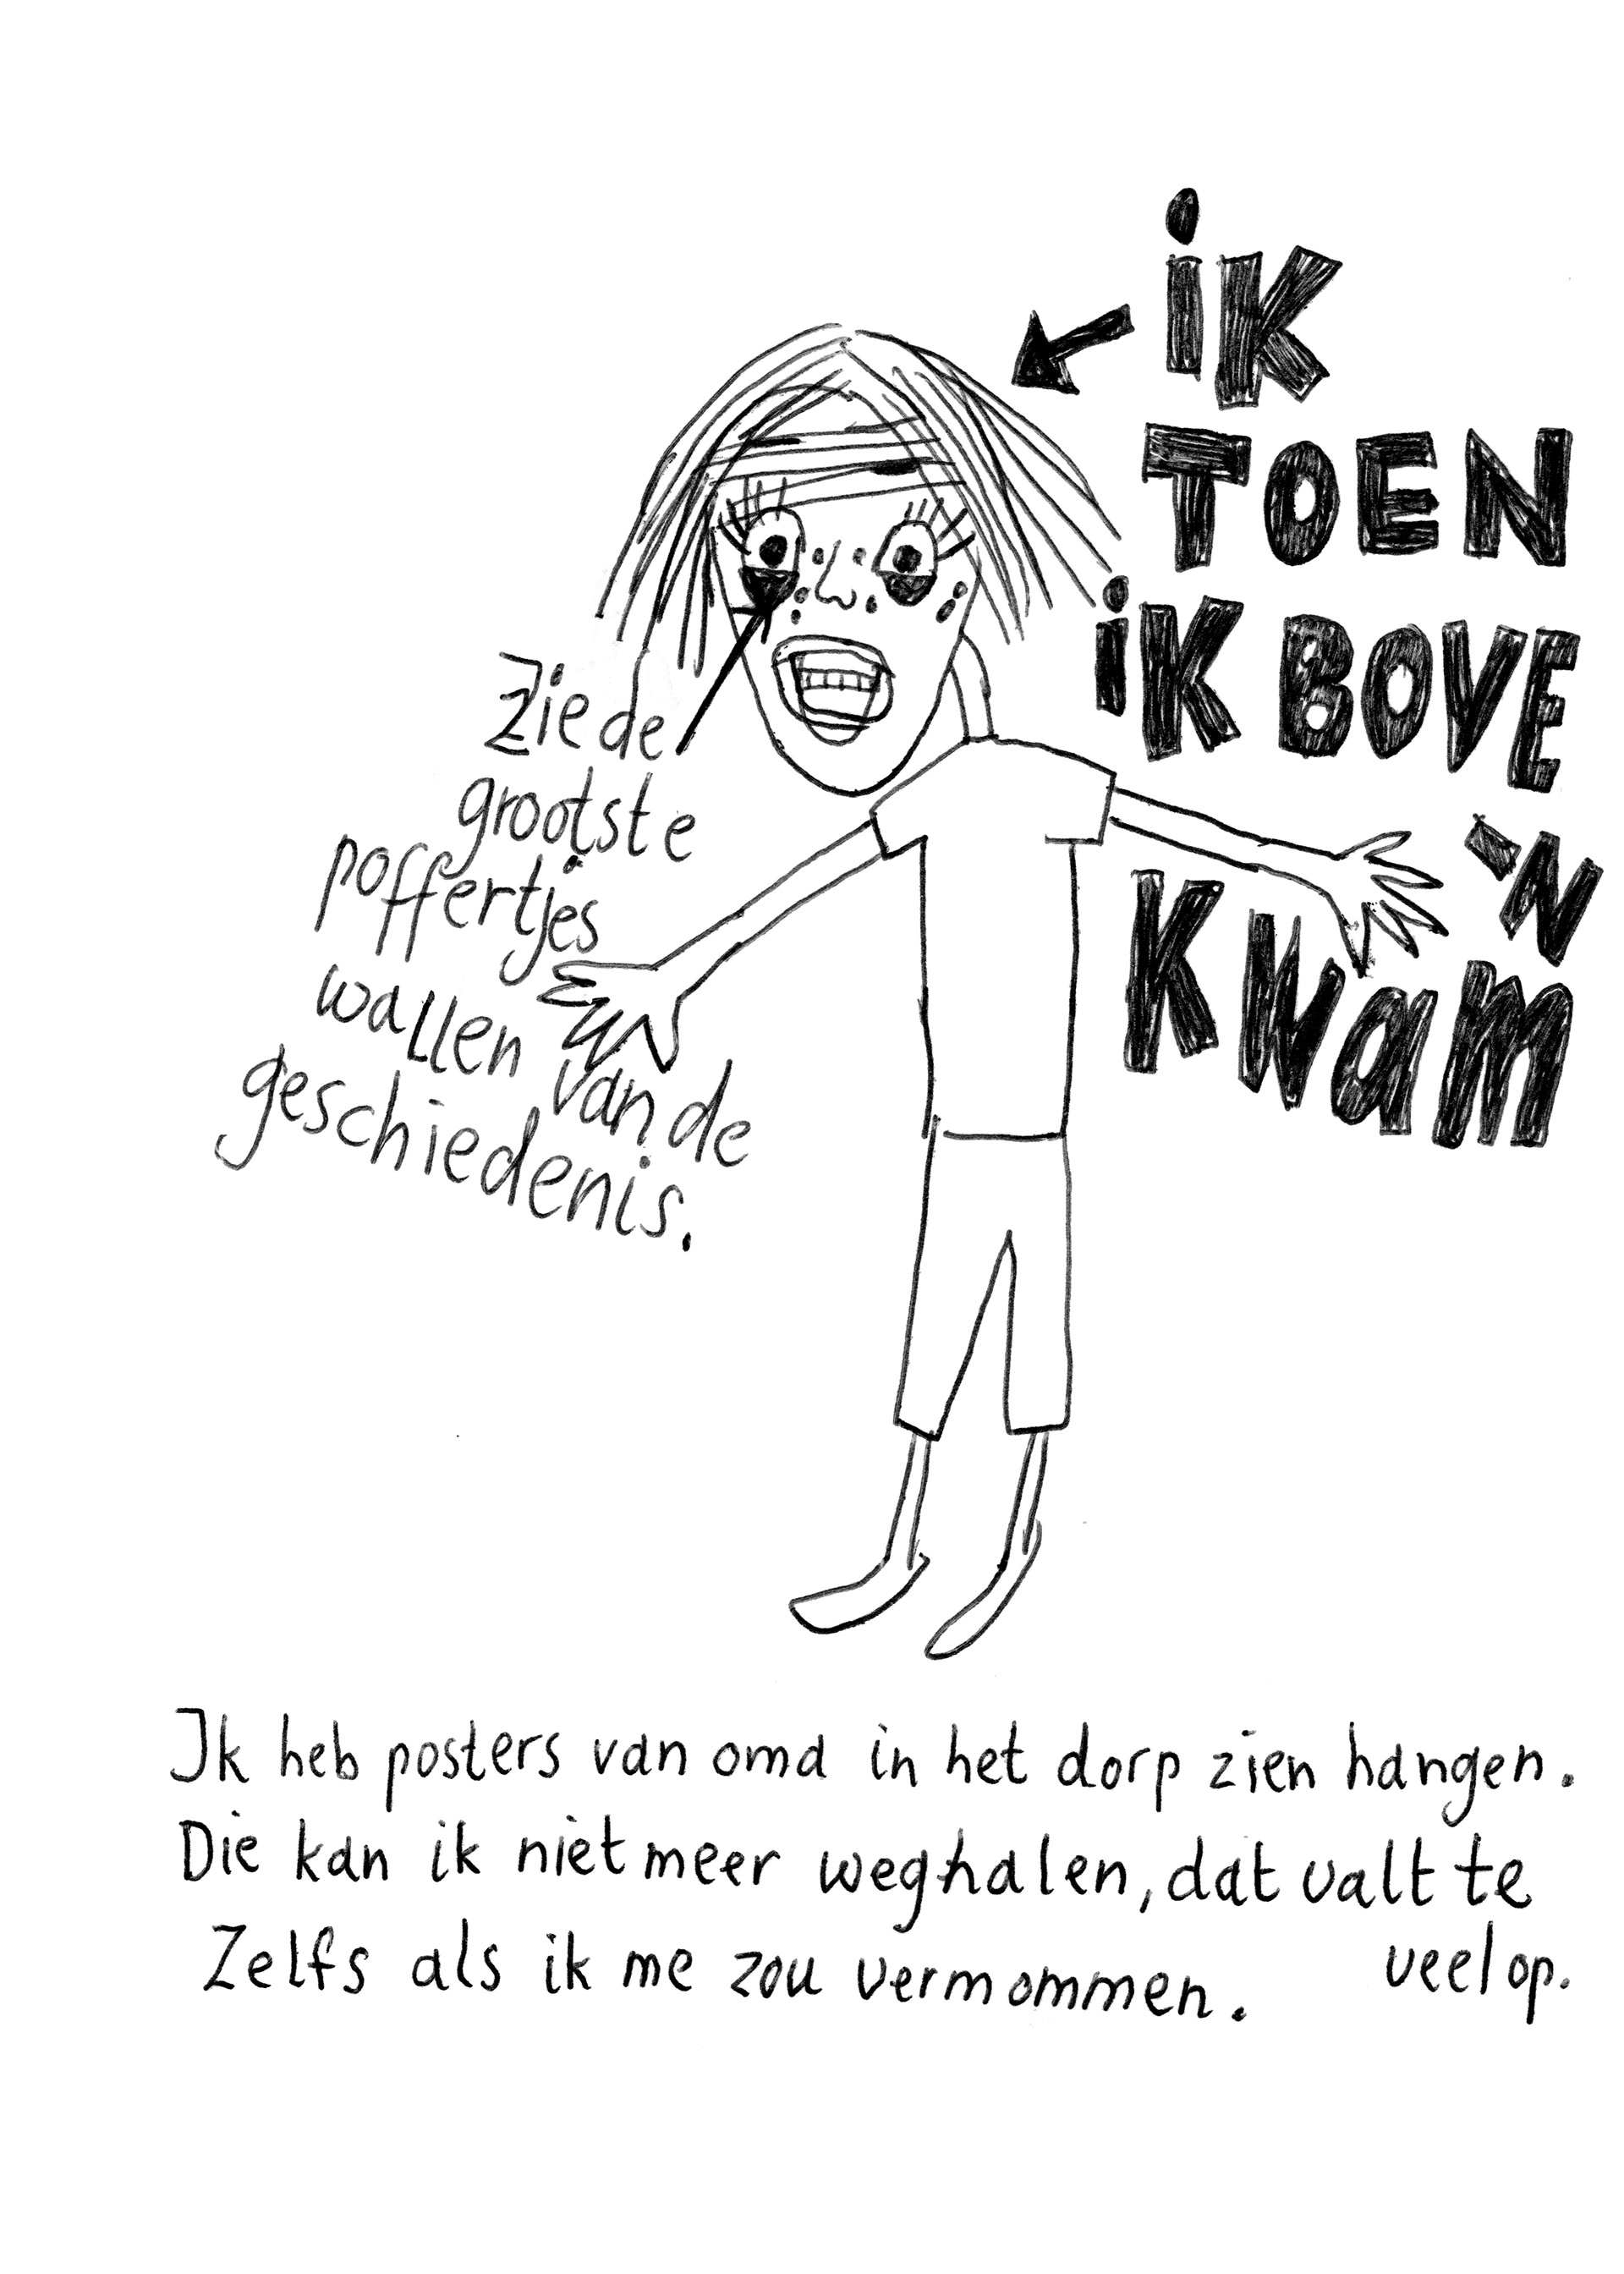 iK
TOEN
iK BOVE
-N
KWam
Zie de
grootste
poffertjes
wallen van de
geschiedenis.
Ik heb posters van oma in het dorp zien hangen.
Die kan ik niet meer weghalen, dat valt te
veel op.
Zelfs als ik me zou vermommen.